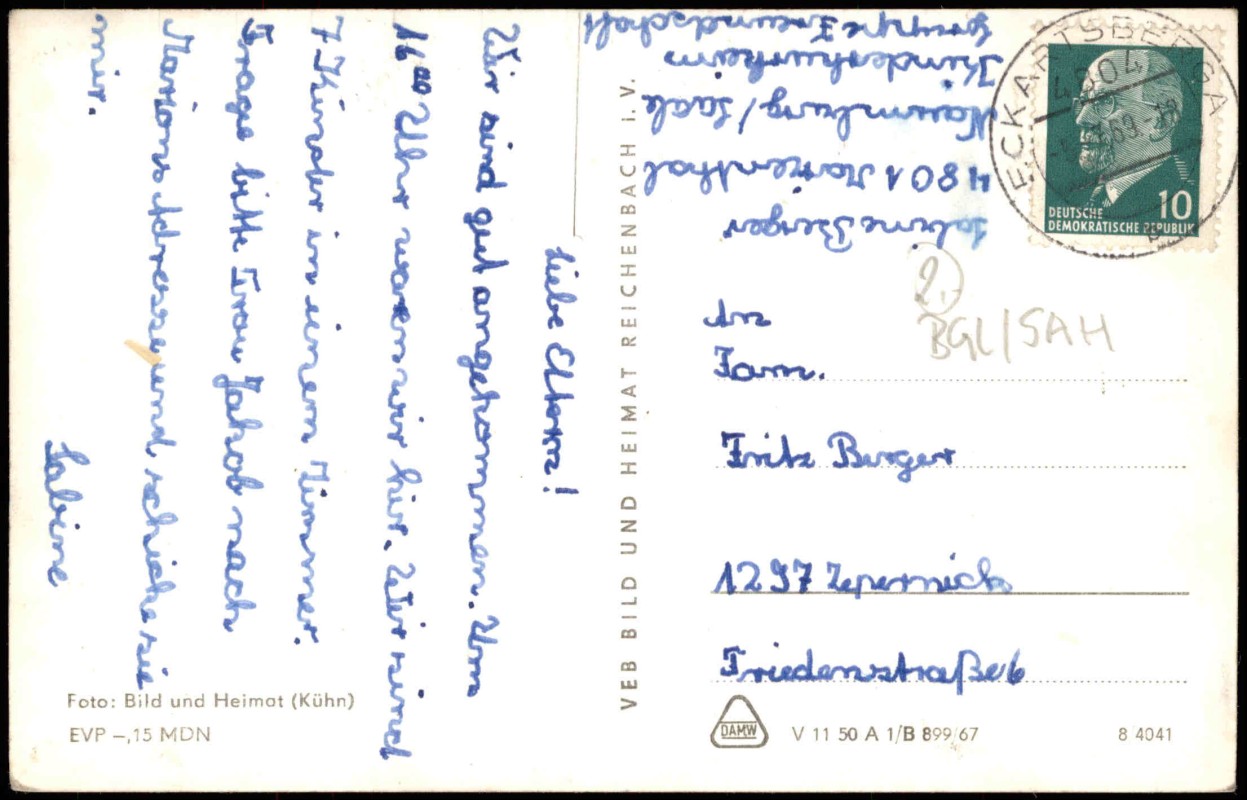 Liebe Eltern!
Wir sind gut angekommen. Um
16⁰⁰ Uhr waren wir hier. Wir sind
7 Kinder in einem Zimmer.
Frage bitte Frau Jakob nach
Marions Adresse und schicke sie
mir.
Sabine
Foto: Bild und Heimat (Kühn)
EVP –,15 MDN
VEB BILD UND HEIMAT REICHENBACH I. V.
Sabine Berger
4801 Marienthal
Naumburg/Saale
Kinderkurheim
Gruppe Freundschaft
ECKARTSBERGA
4804
DEUTSCHE
DEMOKRATISCHE REPUBLIK
10
2.-
BGL/SAH
An
Fam.
Fritz Berger
1297 Zepernick
Friedensstraße 6
DAMW
V 11 50 A 1/B 899/67
8 4041